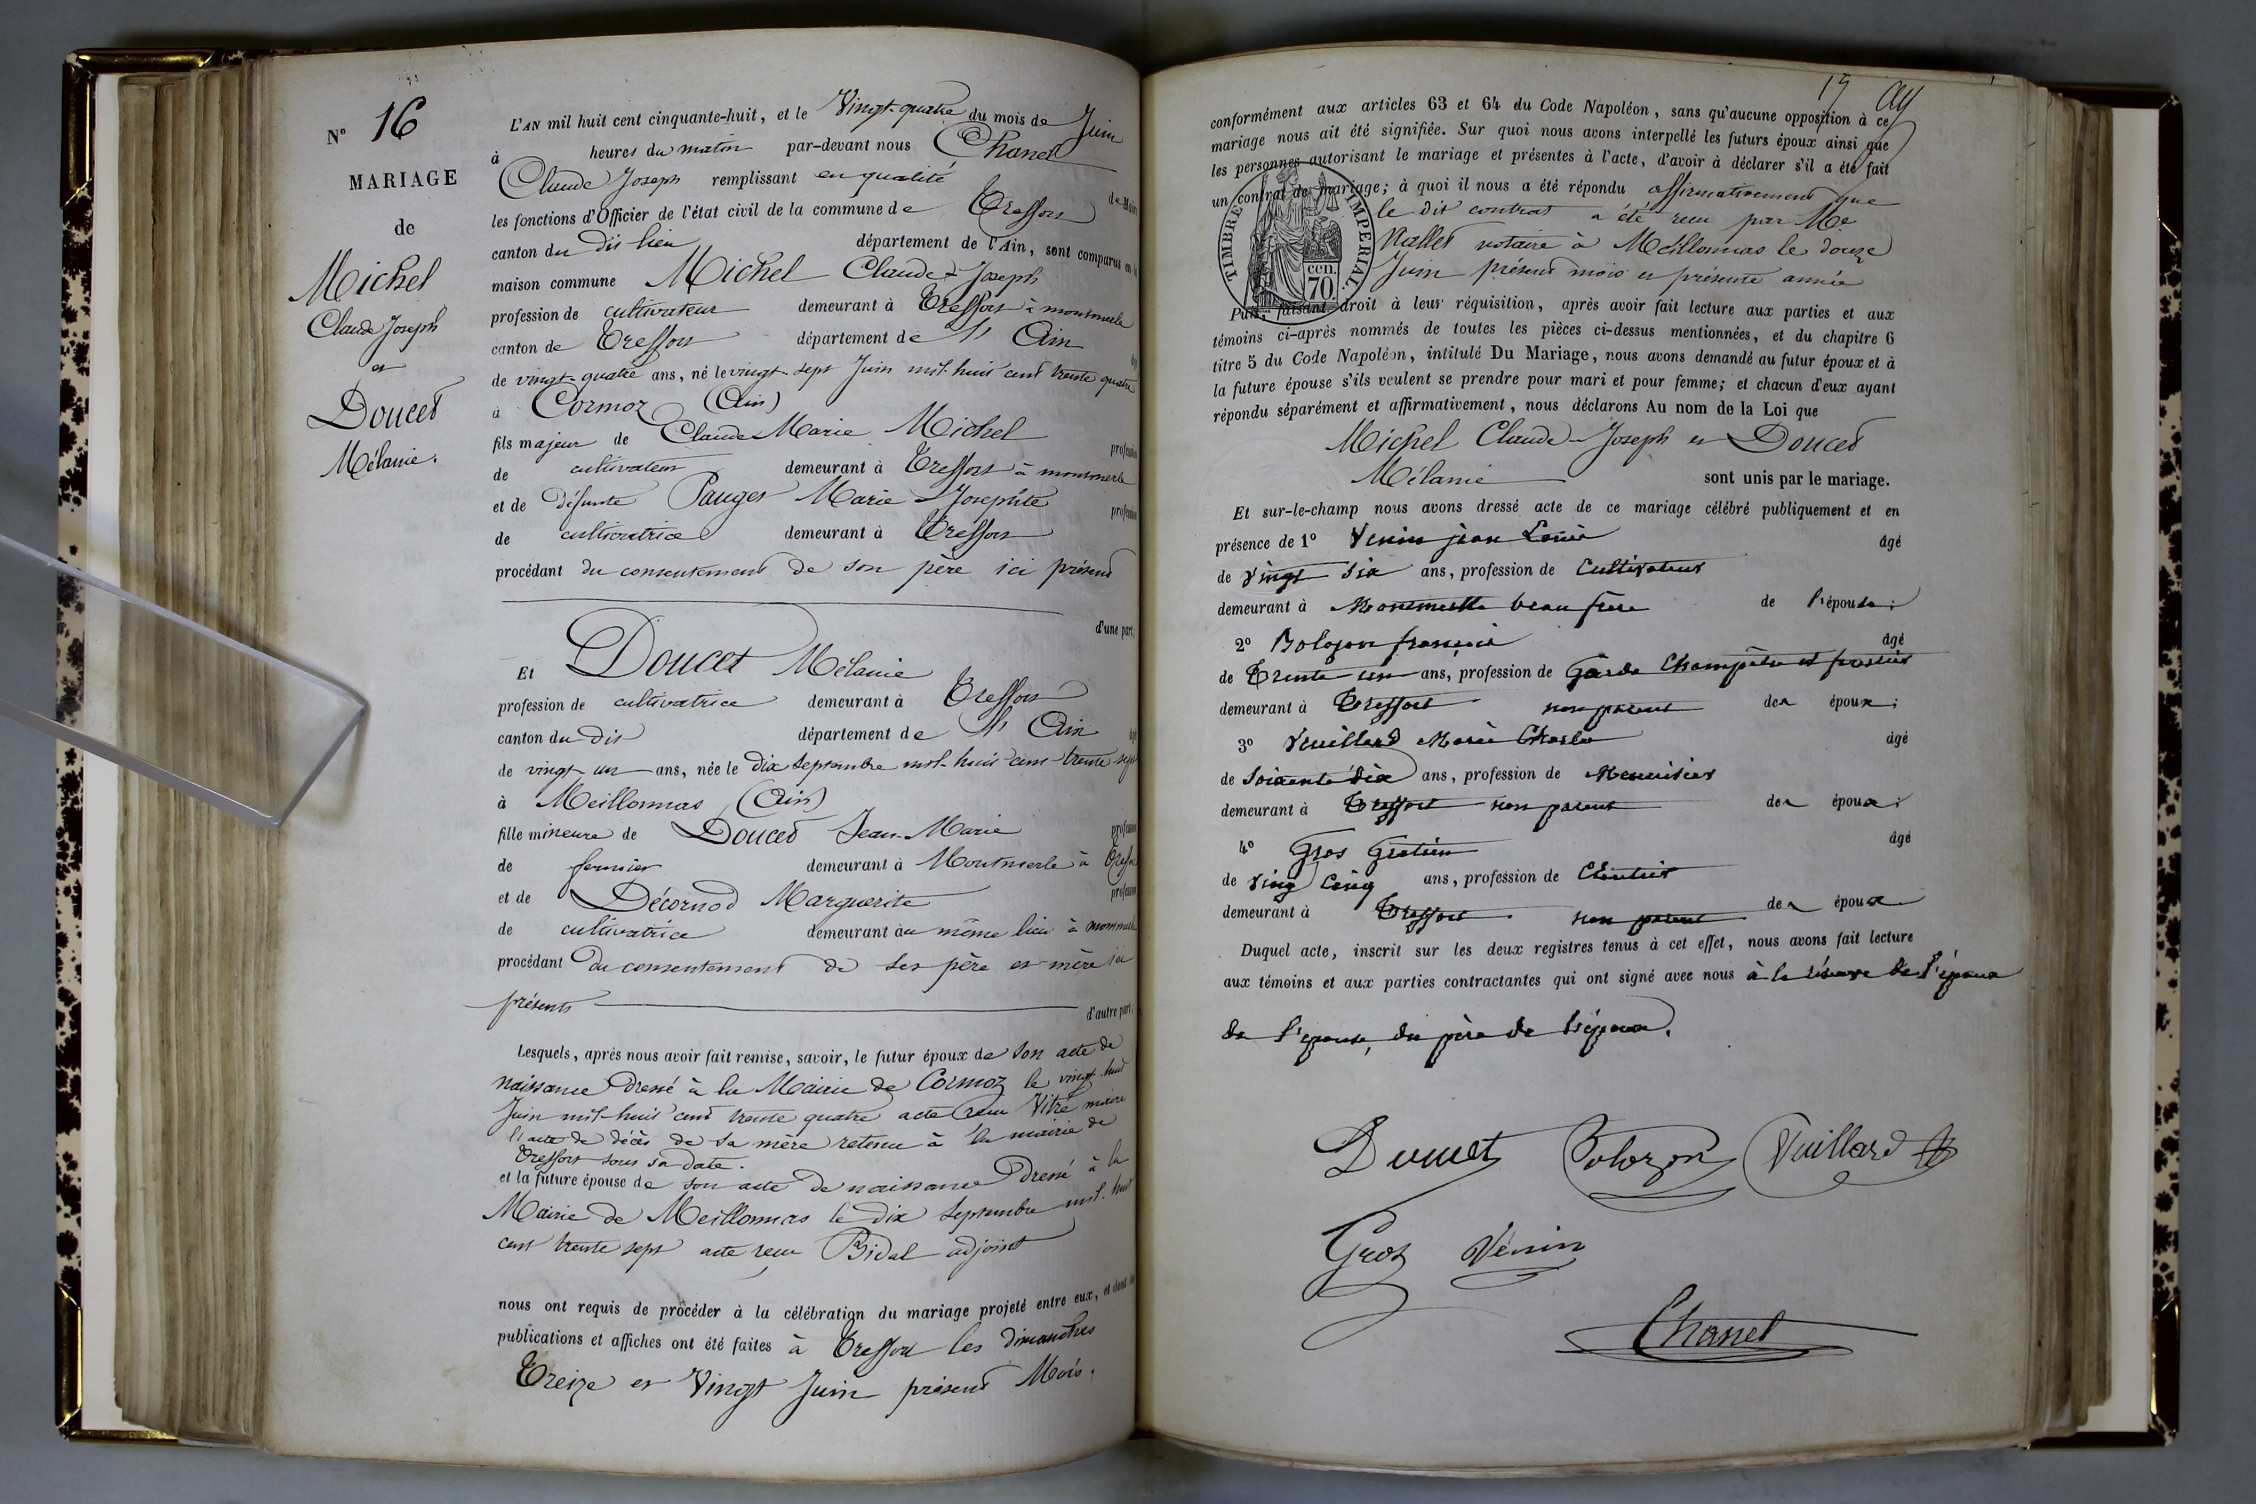 N° 16
MARIAGE
de
Michel
Claude Joseph
et
Doucet
Mélanie.
L'AN mil huit cent cinquante-huit, et le Vingt-quatre du mois de Juin
à heures du matin par-devant nous Chanel
Claude Joseph remplissant en qualité de Maire
les fonctions d'Officier de l'état civil de la commune de Treffort
canton du dit lieu département de l'Ain, sont comparus en la
maison commune Michel Claude-Joseph
profession de cultivateur demeurant à Treffort à monmerle
canton de Treffort département de l' Ain âgé
de vingt-quatre ans, né le vingt-sept Juin mil-huit cent trente quatre
à Cormoz (Ain)
fils majeur de Claude Marie Michel profession
de cultivateur demeurant à Treffort à monmerle
et de défunte Pauget Marie Josephte profession
de cultivatrice demeurant à Treffort
procédant du consentement de son père ici présent
d'une part;
Et Doucet Mélanie
profession de cultivatrice demeurant à Treffort
canton du dit département de l' Ain âgé
de vingt-un ans, née le dix Septembre mil-huit-cent-trente sept
à Meillonnas (Ain)
fille mineure de Doucet Jean-Marie profession
de fermier demeurant à Montmerle à Treffort
et de Décornod Marguerite profession
de cultivatrice demeurant au même lieu à monmerle
procédant du consentement de ses père et mère ici
présents d'autre part.
Lesquels, après nous avoir fait remise, savoir, le futur époux de son acte de
naissance dressé à la Mairie de Cormoz le vingt-huit
Juin mil-huit cent trente quatre acte reçu Vitré maire
l'acte de décès de sa mère retenu à la mairie de
Treffort sous sa date.
et la future épouse de son acte de naissance dressé à la
Mairie de Meillonnas le dix Septembre mil-huit
cent trente sept acte reçu Bidal adjoint
nous ont requis de procéder à la célébration du mariage projeté entre eux, et dont les
publications et affiches ont été faites à Treffort les dimanches
Treize et Vingt Juin présent Mois.
15
conformément aux articles 63 et 64 du Code Napoléon, sans qu'aucune opposition à ce
mariage nous ait été signifiée. Sur quoi nous avons interpellé les futurs époux ainsi que
les personnes autorisant le mariage et présentes à l'acte, d'avoir à déclarer s'il a été fait
un contrat de mariage; à quoi il nous a été répondu affirmativement que
le dit contrat a été reçu par Me
Nallet notaire à Meillonnas le douze
Juin présent mois et présente année
TIMBRE IMPERIAL.
cen.
70.
Puis, faisant droit à leur réquisition, après avoir fait lecture aux parties et aux
témoins ci-après nommés de toutes les pièces ci-dessus mentionnées, et du chapitre 6
titre 5 du Code Napoléon, intitulé Du Mariage, nous avons demandé au futur époux et à
la future épouse s'ils veulent se prendre pour mari et pour femme; et chacun d'eux ayant
répondu séparément et affirmativement, nous déclarons Au nom de la Loi que
Michel Claude-Joseph et Doucet
Mélanie sont unis par le mariage.
Et sur-le-champ nous avons dressé acte de ce mariage célébré publiquement et en
présence de 1° Venin jean Louis âgé
de vingt six ans, profession de Cultivateur
demeurant à Montmerle beau frère de l'épouse;
2° Bolozon françois âgé
de Trente un ans, profession de Garde Champêtre et forestier
demeurant à Treffort non parent des époux;
3° Vuillard Marie Charles âgé
de Soixante dix ans, profession de Menuisier
demeurant à Treffort non parent des époux;
4° Gros Gratien âgé
de Ving Cinq ans, profession de
demeurant à Treffort non parent des époux
Duquel acte, inscrit sur les deux registres tenus à cet effet, nous avons fait lecture
aux témoins et aux parties contractantes qui ont signé avec nous à la réserve de l'époux
de l'épouse, du père de l'époux.
Doucet Bolozon Vuillard
Gros Vénin
Chanel